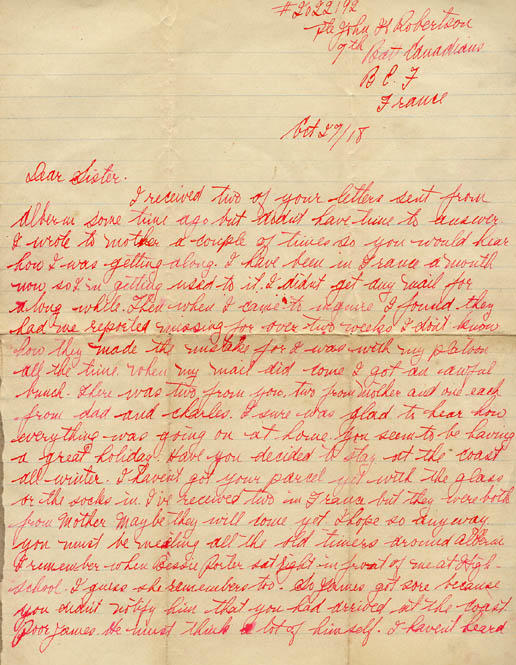 #2022192
Pte John H Robertson
7th Bat Canadians
B E F
France
Oct 27/18
Dear Sister.
I received two of your letters sent from
Alberni some time ago but didn't have time to answer
I wrote to mother a couple of times so you would hear
how I was getting along. I have been in France a month
now, so I'm getting used to it. I didn't get any mail for
a long while. Then when I came to inquire I found they
had me reported missing for over two weeks I don't know
how they made the mistake for I was with my platoon
all the time. When my mail did come I got an awful
bunch. There was two from you, two from mother and one each
from dad and Charles. I sure was glad to hear how
everything was going on at home. You seem to be having
a great holiday. Have you decided to stay at the coast
all winter. I haven't got your parcel yet with the glass
or the socks in. I've received two in France but they were both
from Mother Maybe they will come yet I hope so anyway
you must be meeting all the old timers around Alberni
I remember when Bessie Porter sat right in front of me at High-
school. I guess she remembers too. So James got sore because
you didn't notify him that you had arrived at the coast.
Poor James. He must think a lot of himself. I haven't heard